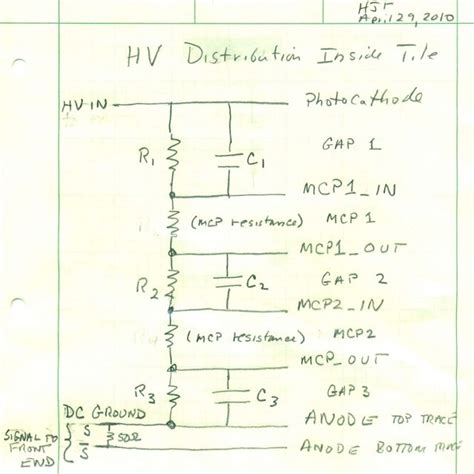 HJF
April 29, 2010
HV Distribution Inside Tile
HV IN
Photocathode
R1
C1
GAP 1
MCP1_IN
(MCP resistance) MCP 1
MCP1_OUT
R2
C2
GAP 2
MCP2_IN
(MCP resistance) MCP2
MCP_OUT
R3
C3
GAP 3
DC GROUND
ANODE TOP TRACE
SIGNAL TO
FRONT
END
S
S
50Ω
ANODE BOTTOM TRACE